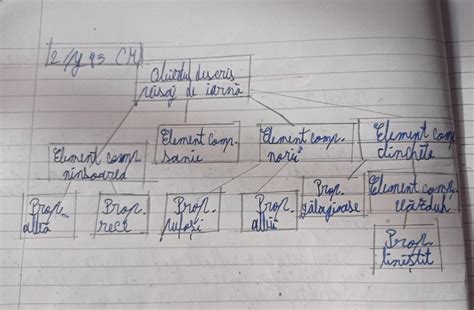 2/pg 93 CM
Obiectul descris
peisaj de iarnă
Element comp.
ninsoarea
Element comp.
sanie
Element comp.
norii
Element comp
clinchete
Prop.
albă
Prop.
rece
Prop.
pufoși
Prop.
albii
Prop.
gălăgioase
Element comp.
văzduh
Prop.
liniștit